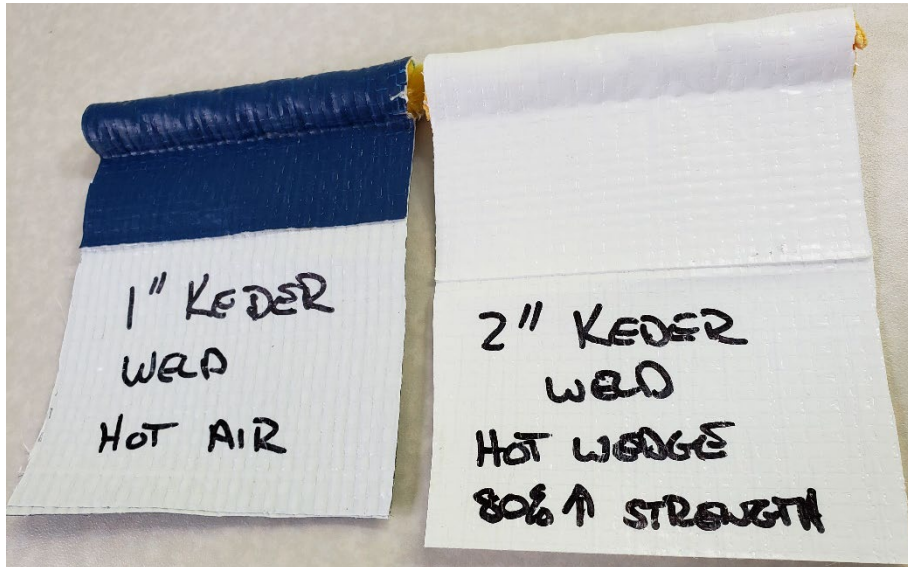 1" KEDER
WELD
HOT AIR
2" KEDER
WELD
HOT WEDGE
80% ↑ STRENGTH